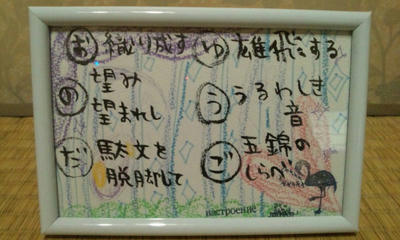 お 織り成す
の 望み
望まれし
だ 駄文を
脱却して
ゆ 雄飛する
う うるわしき
音
ご 五錦の
しらべ
настроение